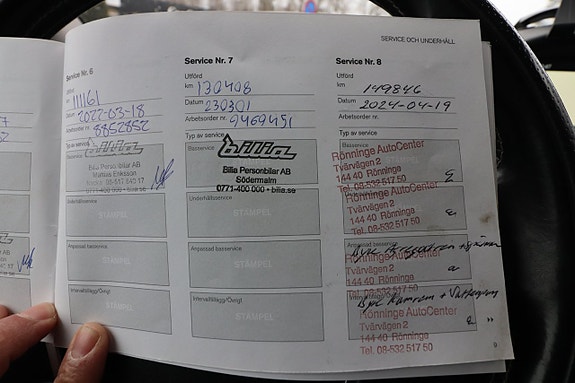 SERVICE OCH UNDERHÅLL
Service Nr. 6
Utförd
km 111161
Datum 2022-03-18
Arbetsorder nr. 8852852
Typ av service
bilia
Bilia Personbilar AB
Mattias Eriksson
Underhållsservice
STÄMPEL
Anpassad basservice
STÄMPEL
Intervalltillägg/Övrigt
STÄMPEL
Service Nr. 7
Utförd
km 130408
Datum 230301
Arbetsorder nr. 9469451
Typ av service
Basservice
bilia
Bilia Personbilar AB
Södermalm
0771-400 000 • bilia.se
Underhållsservice
STÄMPEL
Anpassad basservice
STÄMPEL
Intervalltillägg/Övrigt
STÄMPEL
Service Nr. 8
Utförd
km 149846
Datum 2024-04-19
Arbetsorder nr.
Typ av service
Rönninge AutoCenter
Tvärvägen 2
144 40 Rönninge
Tel. 08-532 517 50
Rönninge AutoCenter
Tvärvägen 2
144 40 Rönninge
Tel. 08-532 517 50
Anpassad basservice
Rönninge AutoCenter
Tvärvägen 2
144 40 Rönninge
Tel. 08-532 517 50
Byte Kamrem + Vattenpump
Rönninge AutoCenter
Tvärvägen 2
144 40 Rönninge
Tel. 08-532 517 50
»
9